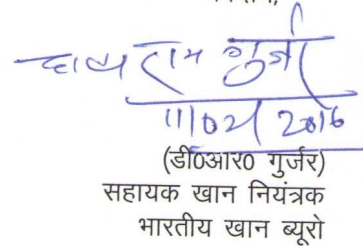 राम गुर्जर
11/02/2016
(डी0आर0 गुर्जर)
सहायक खान नियंत्रक
भारतीय खान ब्यूरो